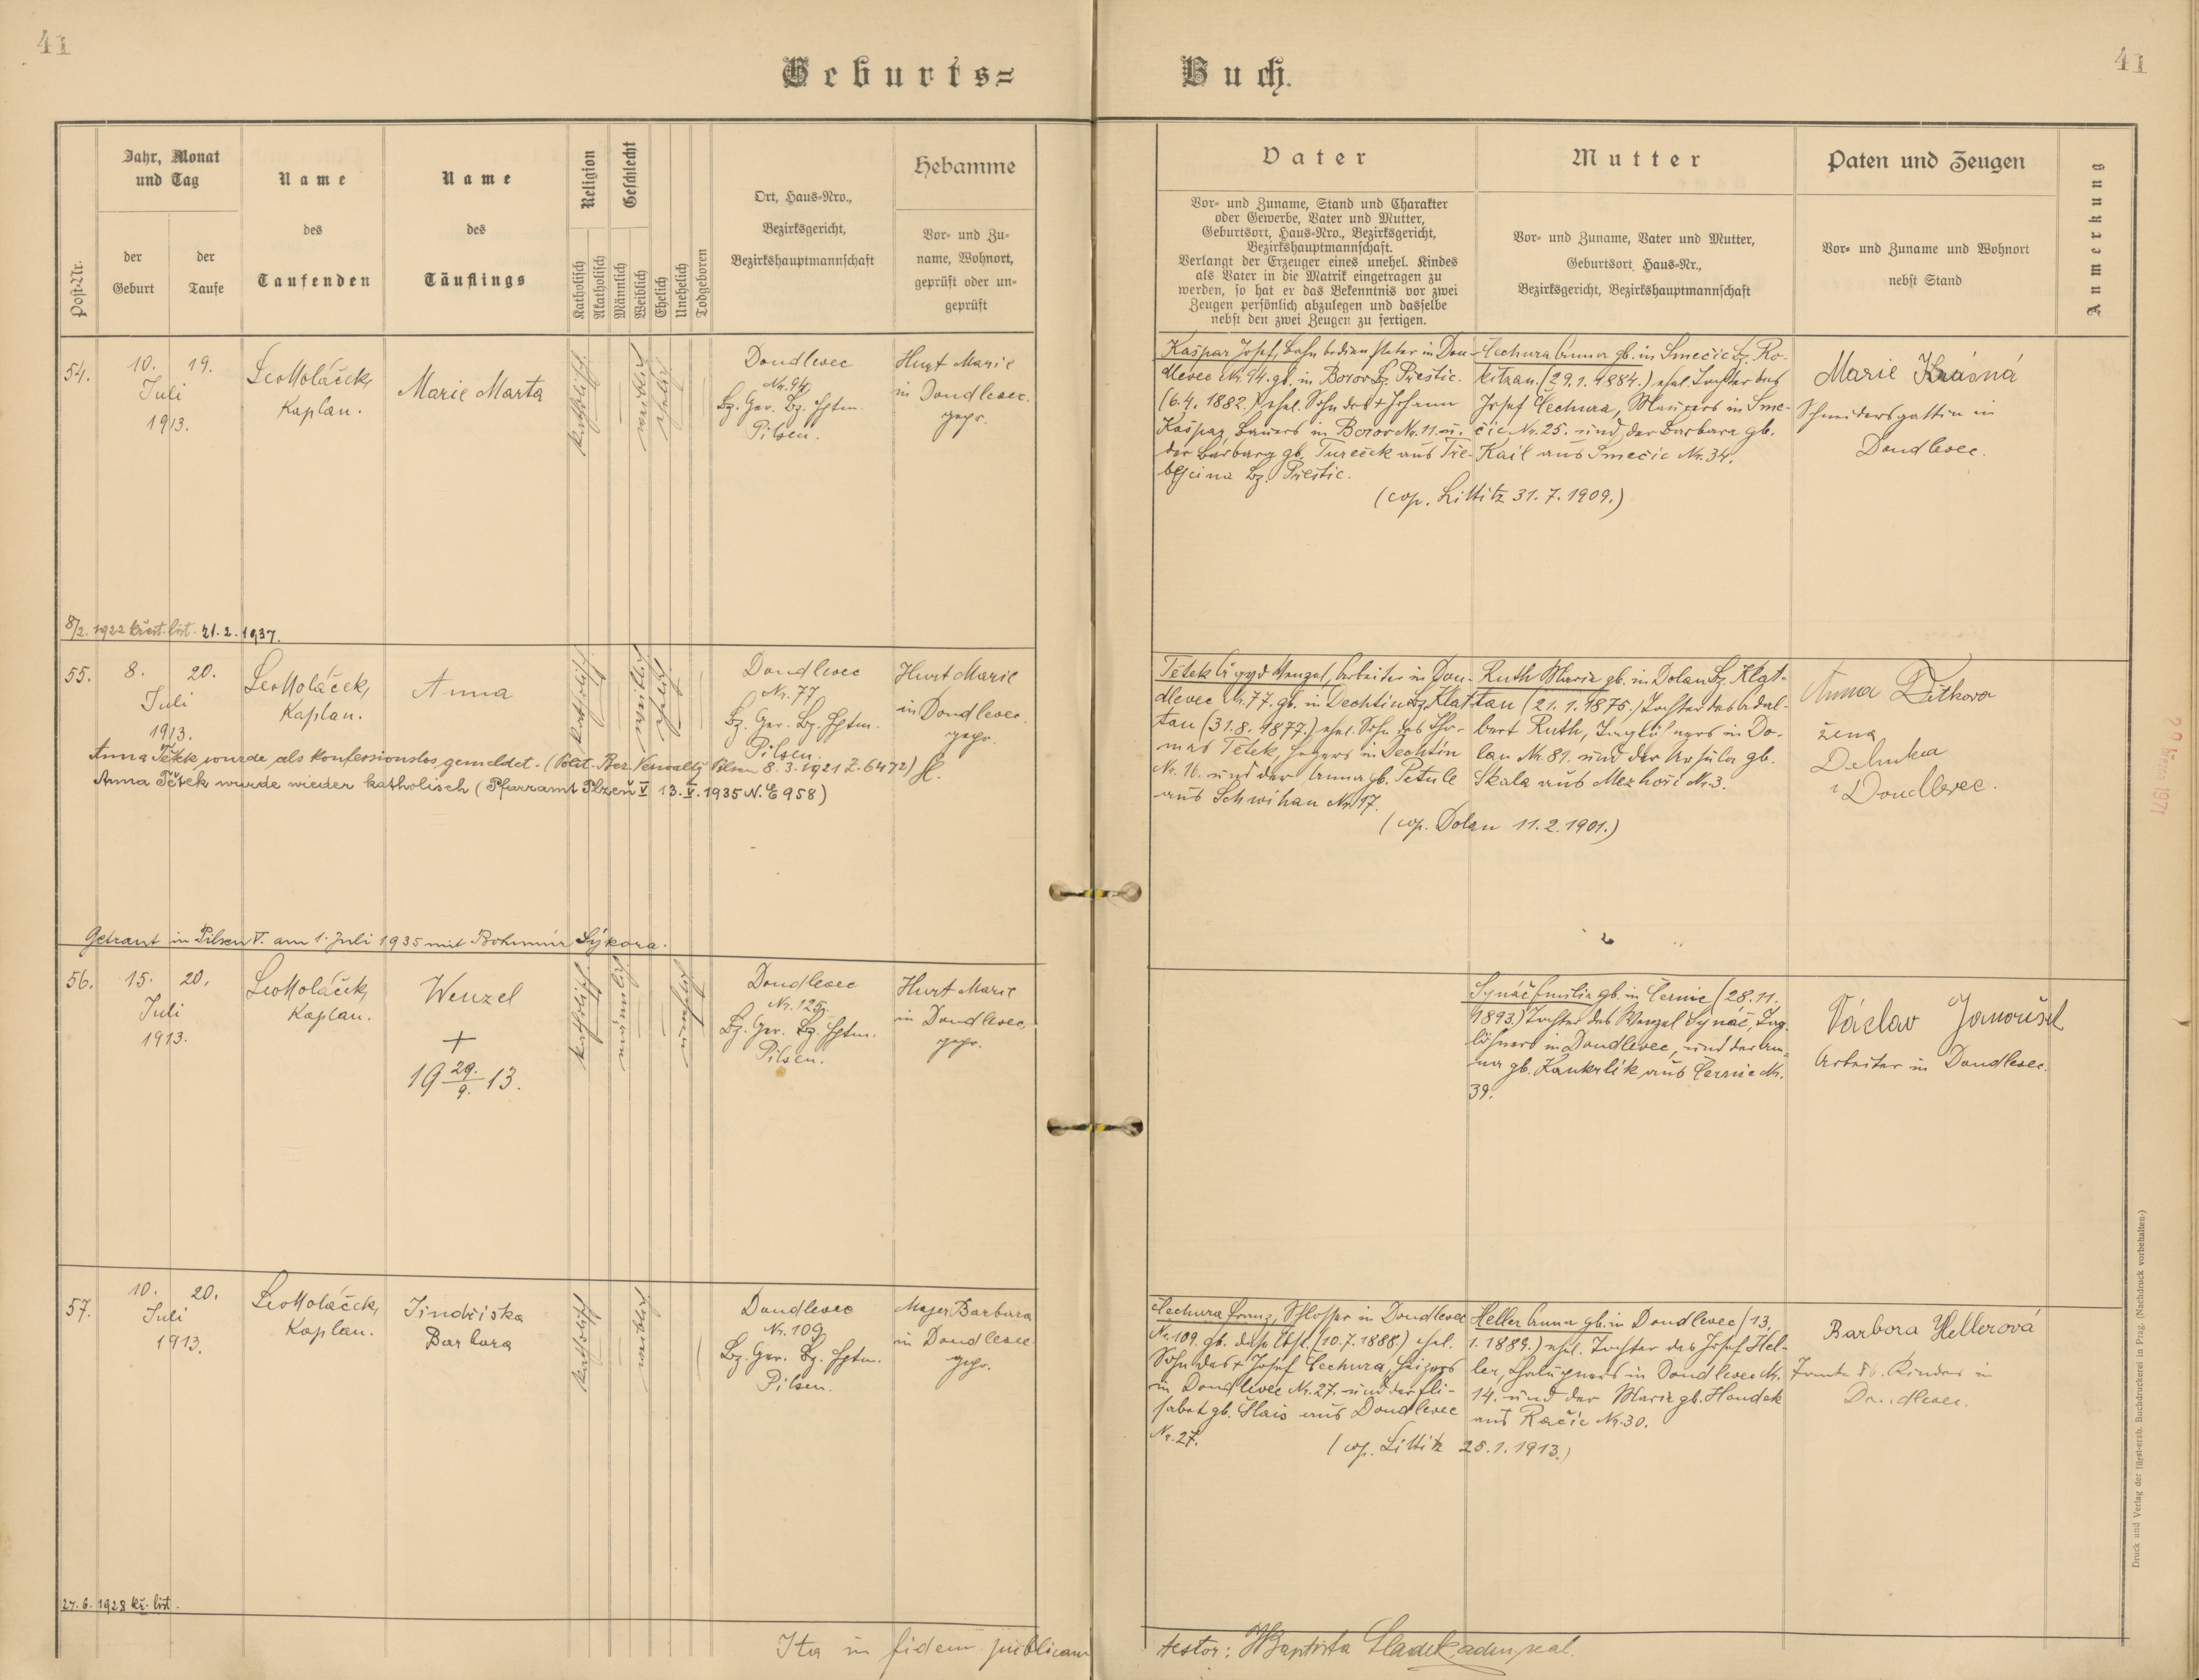 41
41
Geburts=
Buch.
Jahr, Monat
und Tag
Name
Name
Religion
Geschlecht
Ort, Haus=Nro.,
Hebamme
Post=Nr.
der
Geburt
der
Taufe
des
Taufenden
des
Täuflings
Katholisch
Akatholisch
Männlich
Weiblich
Ehelich
Unehelich
Todgeboren
Bezirksgericht,
Bezirkshauptmannschaft
Vor= und Zu=
name, Wohnort,
geprüft oder un=
geprüft
Vater
Mutter
Paten und Zeugen
Anmerkung
Vor= und Zuname, Stand und Charakter
oder Gewerbe, Vater und Mutter,
Geburtsort, Haus=Nro., Bezirksgericht,
Bezirkshauptmannschaft.
Verlangt der Erzeuger eines unehel. Kindes
als Vater in die Matrik eingetragen zu
werden, so hat er das Bekenntnis vor zwei
Zeugen persönlich abzulegen und dasselbe
nebst den zwei Zeugen zu fertigen.
Vor= und Zuname, Vater und Mutter,
Geburtsort, Haus=Nr.,
Bezirksgericht, Bezirkshauptmannschaft
Vor= und Zuname und Wohnort
nebst Stand
54.
10. 19.
Juli
1913.
Leo Koláček,
Kaplan.
Marie Marta
katholisch
weiblich
ehelich
Doudlevec
Nr. 94.
Bz. Ger. Bz. Hptm.
Pilsen.
Hurt Marie
in Doudlevec.
gepr.
Kašpar Josef, Bahnbediensteter in Dou-
dlevec Nr. 94. gb. in Borov Bz. Přestic.
(6.4. 1882.) ehel. Sohn des + Johann
Kašpar, Bauers in Borov Nr. 11. u.
der Barbara gb. Tureček aus Tře-
bejcina Bz. Přestic.
Čechura Anna gb. in Smečic Bz. Ro-
kitzan. (29.1.1884.) ehel. Tochter des
Josef Čechura, Maurers in Sme-
čic Nr. 25. und der Barbara gb.
Kail aus Smečic Nr. 34.
(cop. Littitz 31. 7. 1909.)
Marie Krásná
Schneidersgattin in
Doudlevec.
8/2. 1922 křest. list. 21. 2. 1937.
55.
8. 20.
Juli
1913.
Leo Koláček,
Kaplan.
Anna
katholisch
weiblich
ehelich
Doudlevec
Nr. 77
Bz. Ger. Bz. Hptm.
Pilsen.
Hurt Marie
in Doudlevec.
gepr.
Anna Tětek wurde als konfessionslos gemeldet. (Polit. Bez. Verwaltg Pilsen 8. 3. 1921 Z. 6472)
Anna Tětek wurde wieder katholisch (Pfarramt Plzeň V 13. V. 1935 N. E 958)
Wenzel, Arbeiter in Dou-
dlevec Nr. 77. gb. in Dechtin Bz. Klat-
tau (31.8. 1877.) ehel. Sohn des Tho-
mas Tětek, Hegers in Dechtin
Nr. 16. und der Anna gb. Petule
aus Schwihau Nr. 17.
Ruth Maria gb. in Dolan Bz. Klat-
tau (21. 1. 1875.) Tochter des Adal-
bert Ruth, Taglöhners in Do-
lan Nr. 81. und der Ursula gb.
Skala aus Mezhoří Nr. 3.
(cop. Dolan 11. 2. 1901.)
Anna
žena
v Doudlevec.
Getraut in Pilsen V. am 1. Juli 1935 mit Bohumír Sýkora.
56.
15. 20.
Juli
1913.
Leo Koláček,
Kaplan.
Wenzel
+
19 29./9. 13.
katholisch
männlich
unehelich
Doudlevec
Nr. 125.
Bz. Ger. Bz. Hptm.
Pilsen.
Hurt Marie
in Doudlevec,
gepr.
Synáč Emilie gb. in Černic (28. 11.
1893.) Tochter des Wenzel Synáč, Tag-
löhners in Doudlevec, und der An-
na gb. Kaukrlík aus Černic Nr.
39.
Václav Janoušek
Arbeiter in Doudlevec.
57.
10. 20.
Juli
1913.
Leo Koláček,
Kaplan.
Jindřiska
Barbara
katholisch
weiblich
Doudlevec
Nr. 109
Bz. Ger. Bz. Hptm.
Pilsen.
Majer Barbara
in Doudlevec
gepr.
Čechura Franz, Schlosser in Doudlevec
Nr. 109. gb. daselbst. (10.7.1888.) ehel.
Sohn des + Josef Čechura, Heizers
in Doudlevec Nr. 27. und der Eli-
sabet gb. Šlais aus Doudlevec
Nr. 27.
Heller Anna gb. in Doudlevec (13.
1. 1889.) ehel. Tochter des Josef Hel-
ler, Chalupners in Doudlevec Nr.
14. und der Maria gb. Houdek
aus Račic Nr. 30.
(cop. Littitz 25. 1. 1913.)
Barbora Hellerová
Tante d. Kindes in
Doudlevec.
27. 6. 1928 kř. list.
Ita in fidem publicam
testor: Sladek,
Druck und Verlag der fürst-erzb. Buchdruckerei in Prag. (Nachdruck vorbehalten.)